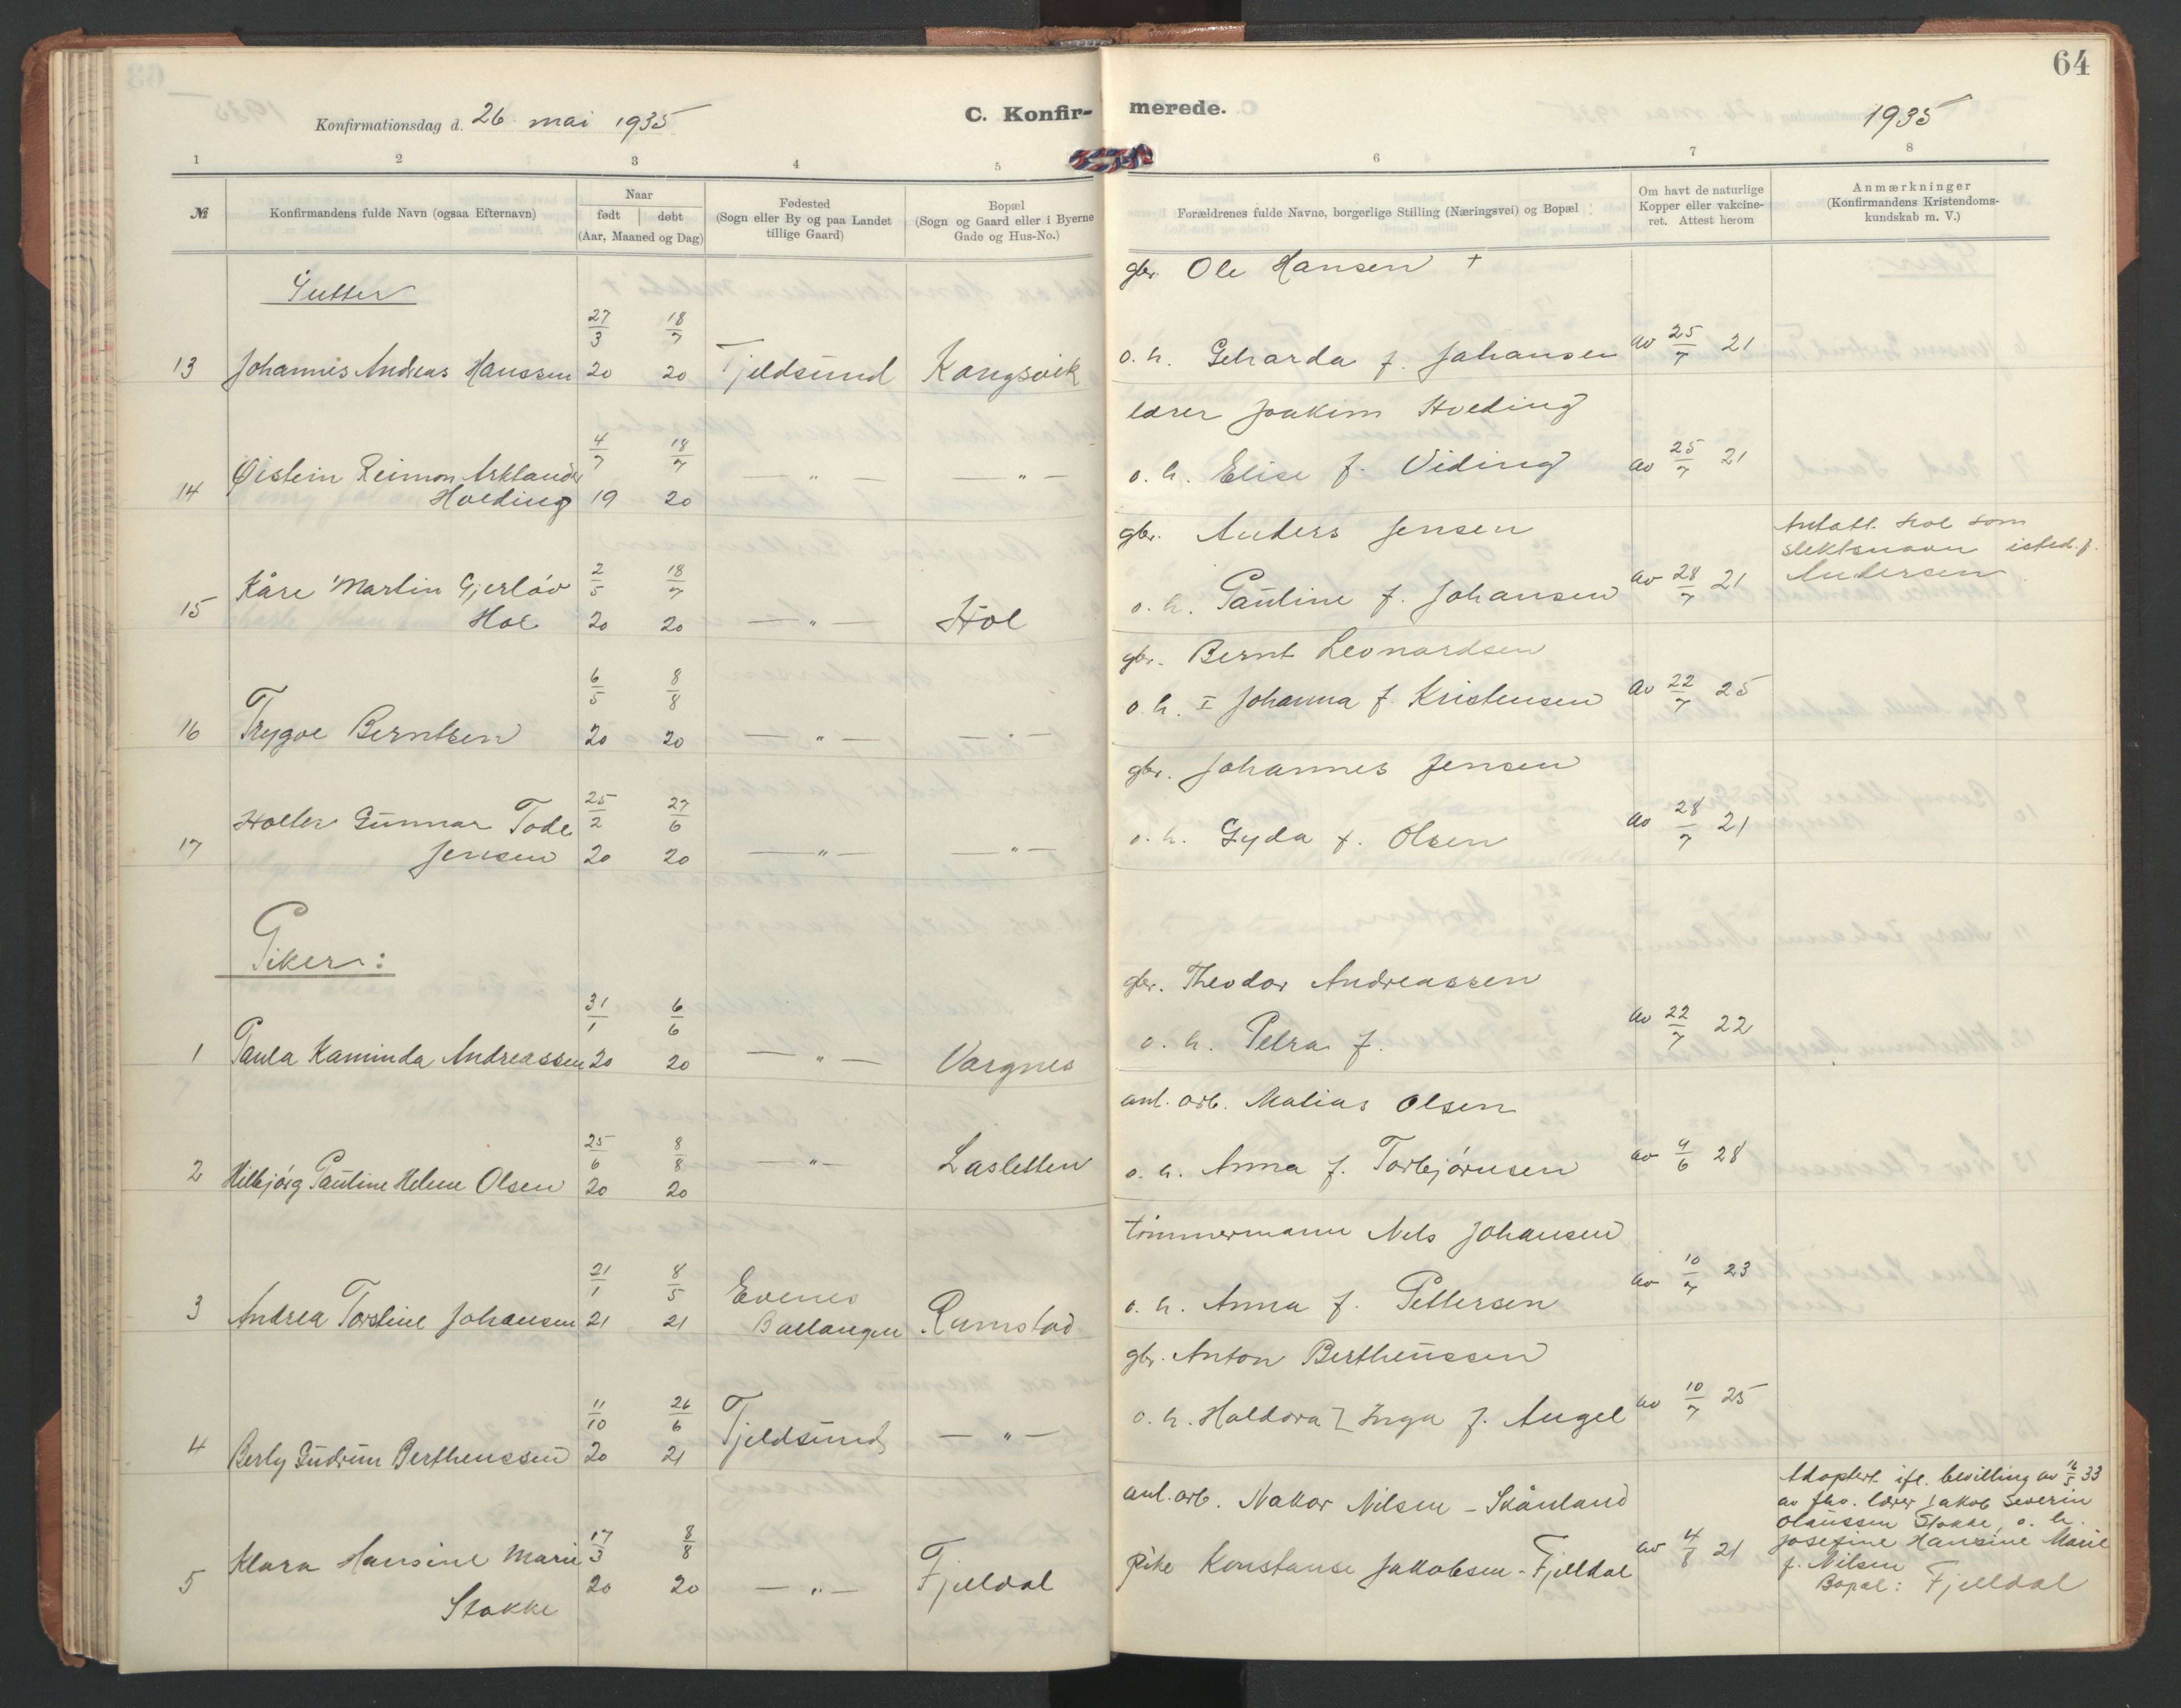 64
Konfirmationsdag d. 26. mai 1935
C. Konfir-
merede.
1935
1 2 3 4 5 6 7 8
№
Konfirmandens fulde Navn (ogsaa Efternavn)
Naar
født | døbt
(Aar, Maaned og Dag)
Fødested
(Sogn eller By og paa Landet
tillige Gaard)
Bopæl
(Sogn og Gaard eller i Byerne
Gade og Hus-No.)
Forældrenes fulde Navne, borgerlige Stilling (Næringsvei) og Bopæl
Om havt de naturlige
Kopper eller vakcine-
ret. Attest herom
Anmærkninger
(Konfirmandens Kristendoms-
kundskab m. V.)
Gutter
gbr. Ole Hansen +
27/3 18/7
13 Johannes Andreas Hanssen 20 20 Tjeldsund Kongsvik
o. h. Geharda f. Johansen av 25/7 21
lærer Joakim Hveding
4/7 18/7
Øistein Reimon Arklander
14 Hveding 19 20 — " — — " —
o. h. Elise f. Viding av 25/7 21
gbr. Anders Jensen
Antatt Hol som
slektsnavn isted. f.
Andersen
2/5 18/7
Kåre Martin Gjerløv
15 Hol 20 20 — " — Hol
o. h. Pauline f. Johansen av 28/7 21
gbr. Bernt Leonardsen
6/5 8/8
16 Trygve Berntsen 20 20 — " — — " —
o. h. I Johanna f. Kristensen av 22/7 25
gbr. Johannes Jensen
25/2 27/6
Holter Gunnar Tode
17 Jensen 20 20 — " — — " —
o. h. Gyda f. Olsen av 28/7 21
Piker:
gbr. Theodor Andreassen
31/1 6/6
1 Paula Kaminda Andreassen 20 20 — " — Vargnes
o. h. Petra f. av 22/7 22
anl. arb. Matias Olsen
25/6 8/8
2 Hilbjørg Pauline Helene Olsen 20 20 — " — Lasletten
o. h. Anna f. Torbjørnsen av 9/6 28
tømmermann Nils Johansen
21/1 8/5 Evenes
3 Andrea Torstine Johansen 21 21 Ballangen Ramstad
o. h. Anna f. Pettersen av 10/7 23
gbr. Anton Bertheussen
11/10 26/6
4 Berly Gudrun Bertheussen 20 21 Tjeldsund — " —
o. h. Haldora Inga f. Angel av 10/7 25
anl. arb. Nakor Nilsen - Skånland
17/3 8/8
Klara Hansine Marie
5 Stokke 20 20 — " — Fjelldal
pike Konstanse Jakobsen - Fjelldal av 4/8 21
Adoptert ifl. bevilling av 16/5 33
av fhv. lærer Jakob Severin
Olaussen Stokke o. h.
Josefine Hansine Marie
f. Nilsen
Bopæl: Fjelldal